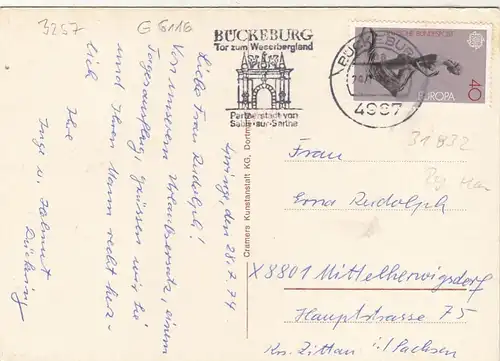 3257
G 5116
BÜCKEBURG
Tor zum Weserbergland
Partnerstadt von
Sablé-sur-Sarthe
BÜCKEBURG
4967
EUROPA
40
31832
Springe, den 28.7.74
Liebe Frau Rudolph!
Von unserem Urlaubsersatz, einem
Tagesausflug, grüssen wir Sie
und Ihren Mann recht herz-
lich
Ihre
Inge u. Helmut
Cramers Kunstanstalt KG, Dortmund
Frau
Erna Rudolph
X 8801 Mittelherwigsdorf
Hauptstrasse 75
Krs. Zittau i./Sachsen